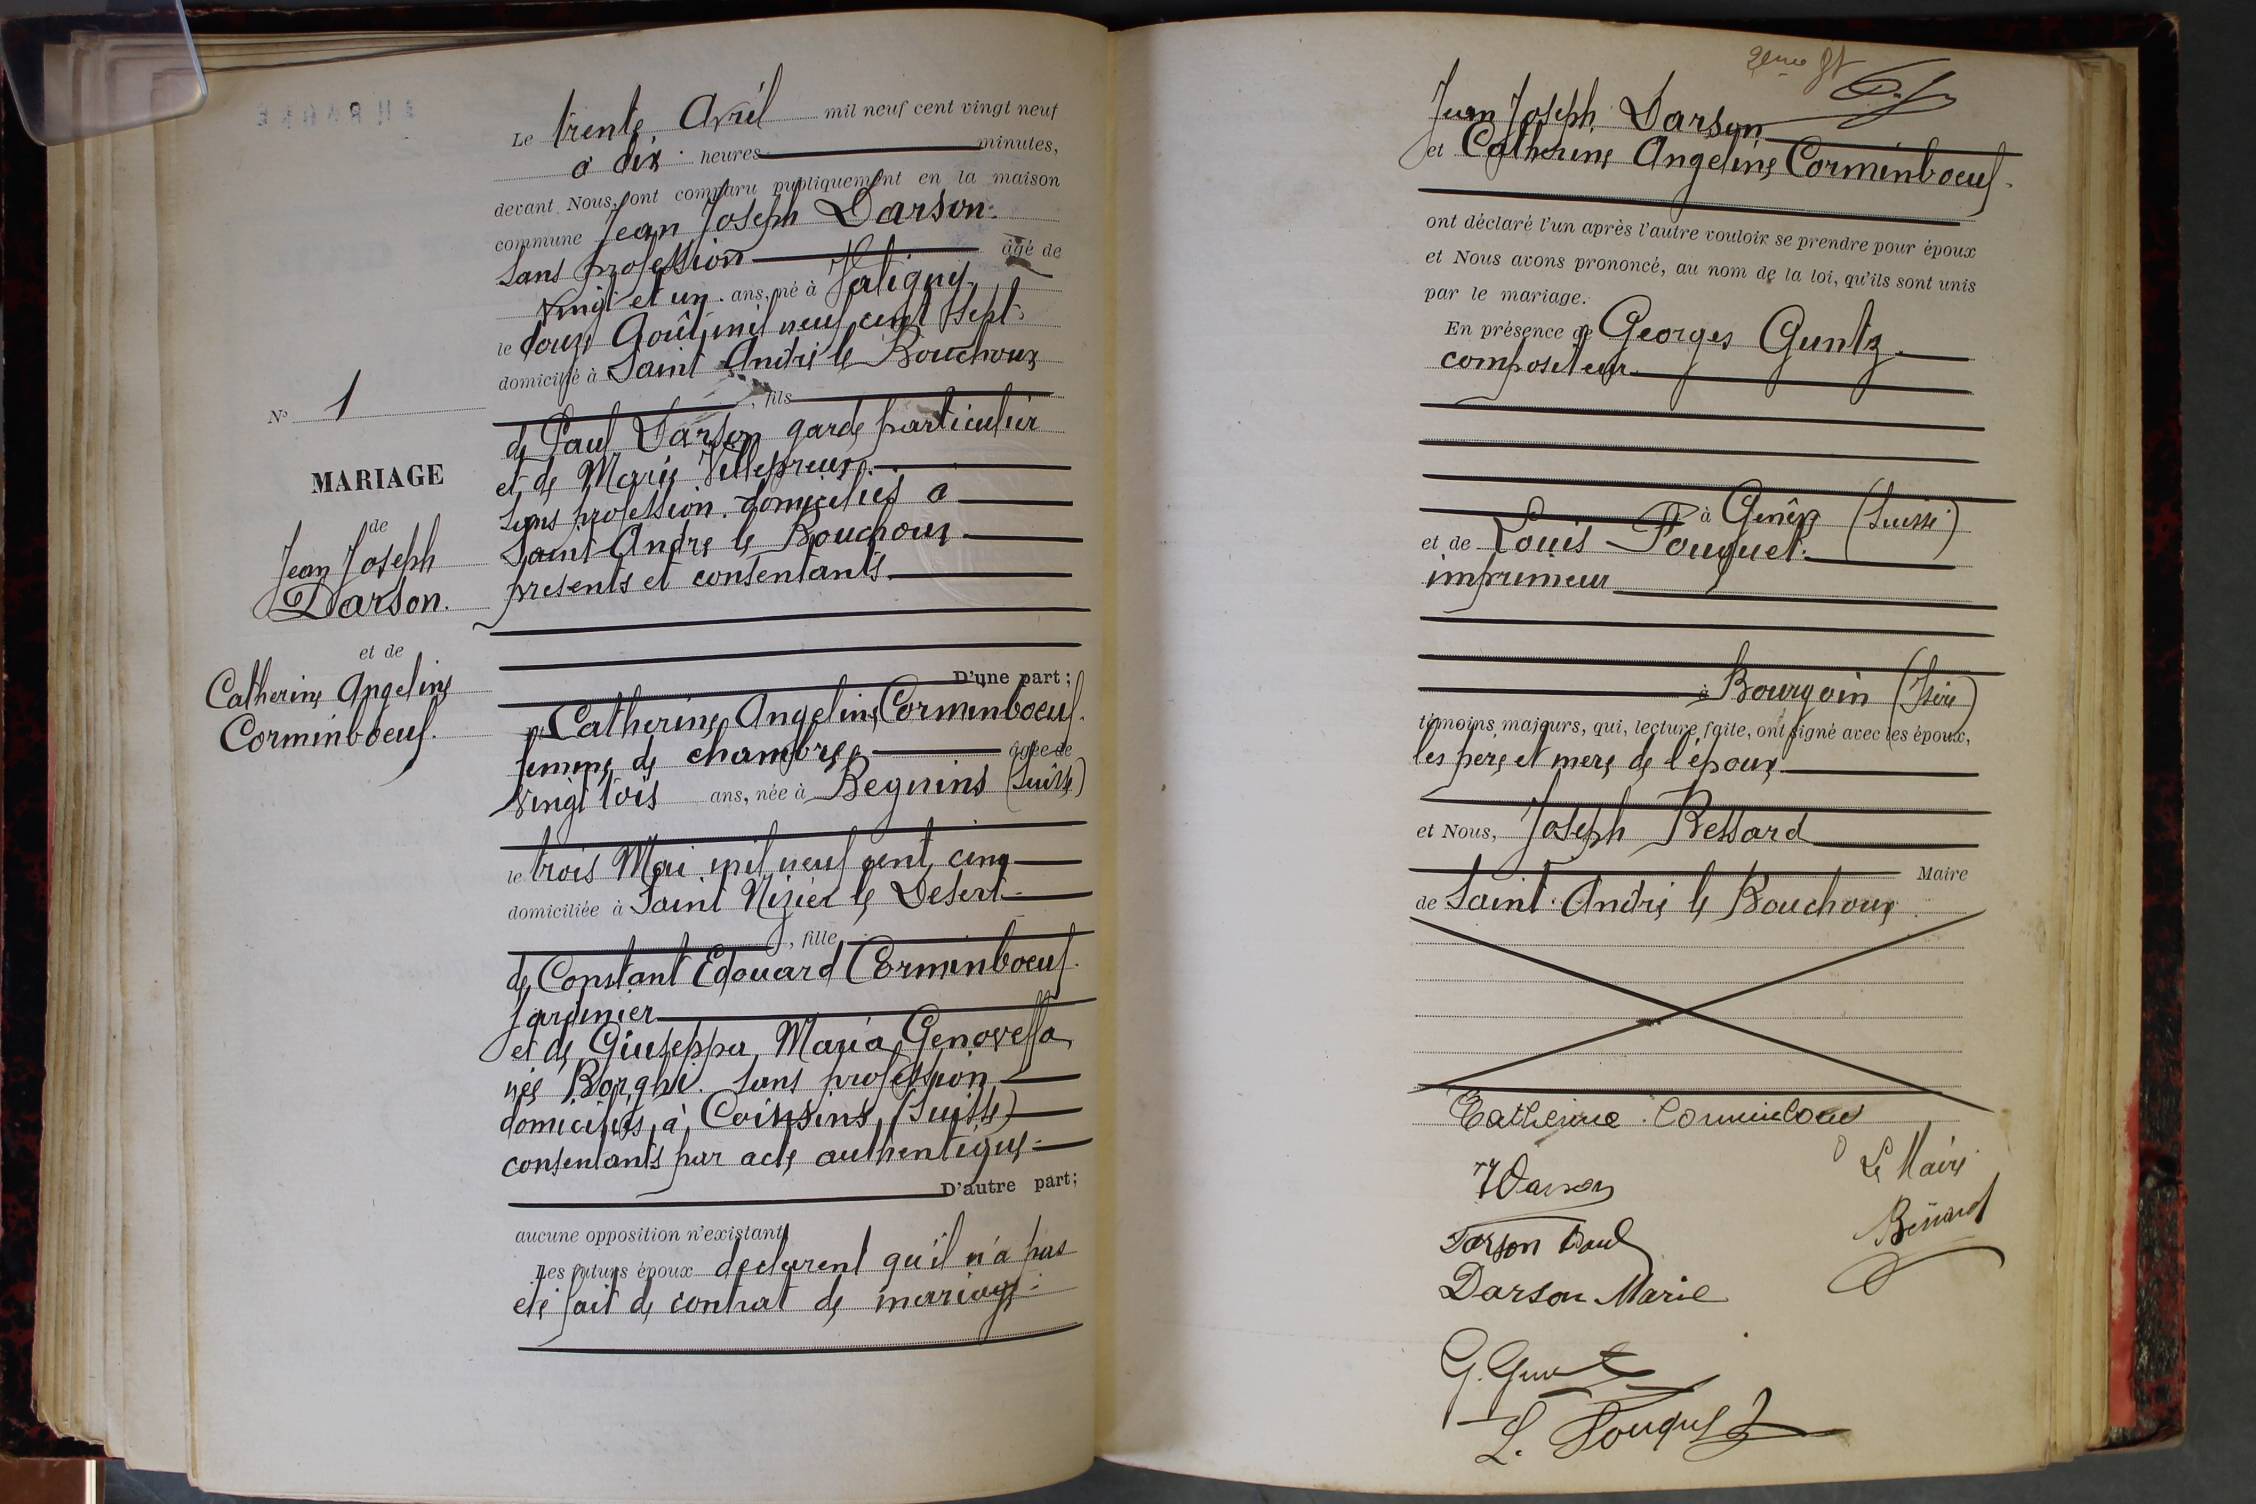 Le trente Avril mil neuf cent vingt neuf
à dix heures minutes,
devant Nous, ont comparu publiquement en la maison
commune Jean Joseph Darson.
sans profession âgé de
vingt et un ans, né à Jaligny
le douze Août mil neuf cent sept
domicilié à Saint André le Bouchoux
, fils
de Paul Darson garde particulier
et de Marie Villepreux
sans profession. domiciliés à
Saint-André le Bouchoux
presents et consentants
D'une part;
Catherine, Angeline Corminboeuf.
femme de chambre âgée de
vingt tois ans, née à Begnins (Suisse)
le trois Mai mil neuf cent cinq
domiciliée à Saint Nizier le Desert
, fille
de Constant Edouard Corminboeuf.
jardinier
et de Giuseppa Maria Genoveffa
née Borghi. sans profession
domiciliés à Coinsins (Suisse)
consentants par acte authentique
D'autre part;
aucune opposition n'existant
Les futurs époux declarent qu'il n'a pas
eté fait de contrat de mariage.
N° 1
MARIAGE
de
Jean Joseph
Darson.
et de
Catherine Angeline
Corminboeuf.
2eme
Jean Joseph Darson
et Catherine Angeline Corminboeuf.
ont déclaré l'un après l'autre vouloir se prendre pour époux
et Nous avons prononcé, au nom de la loi, qu'ils sont unis
par le mariage.
En présence de Georges Guntz
compositeur
à Genève (Suisse)
et de Louis Fouquet.
imprimeur
à Bourgoin (Isère)
témoins majeurs, qui, lecture faite, ont signé avec les époux,
les pere et mere de l'époux
et Nous, Joseph Bessard
Maire
de Saint André le Bouchoux
Catherine Corminboeuf
J Darson
Le Maire
Bessard
Darson Paul
Darson Marie
G. Guntz
L. Fouquet